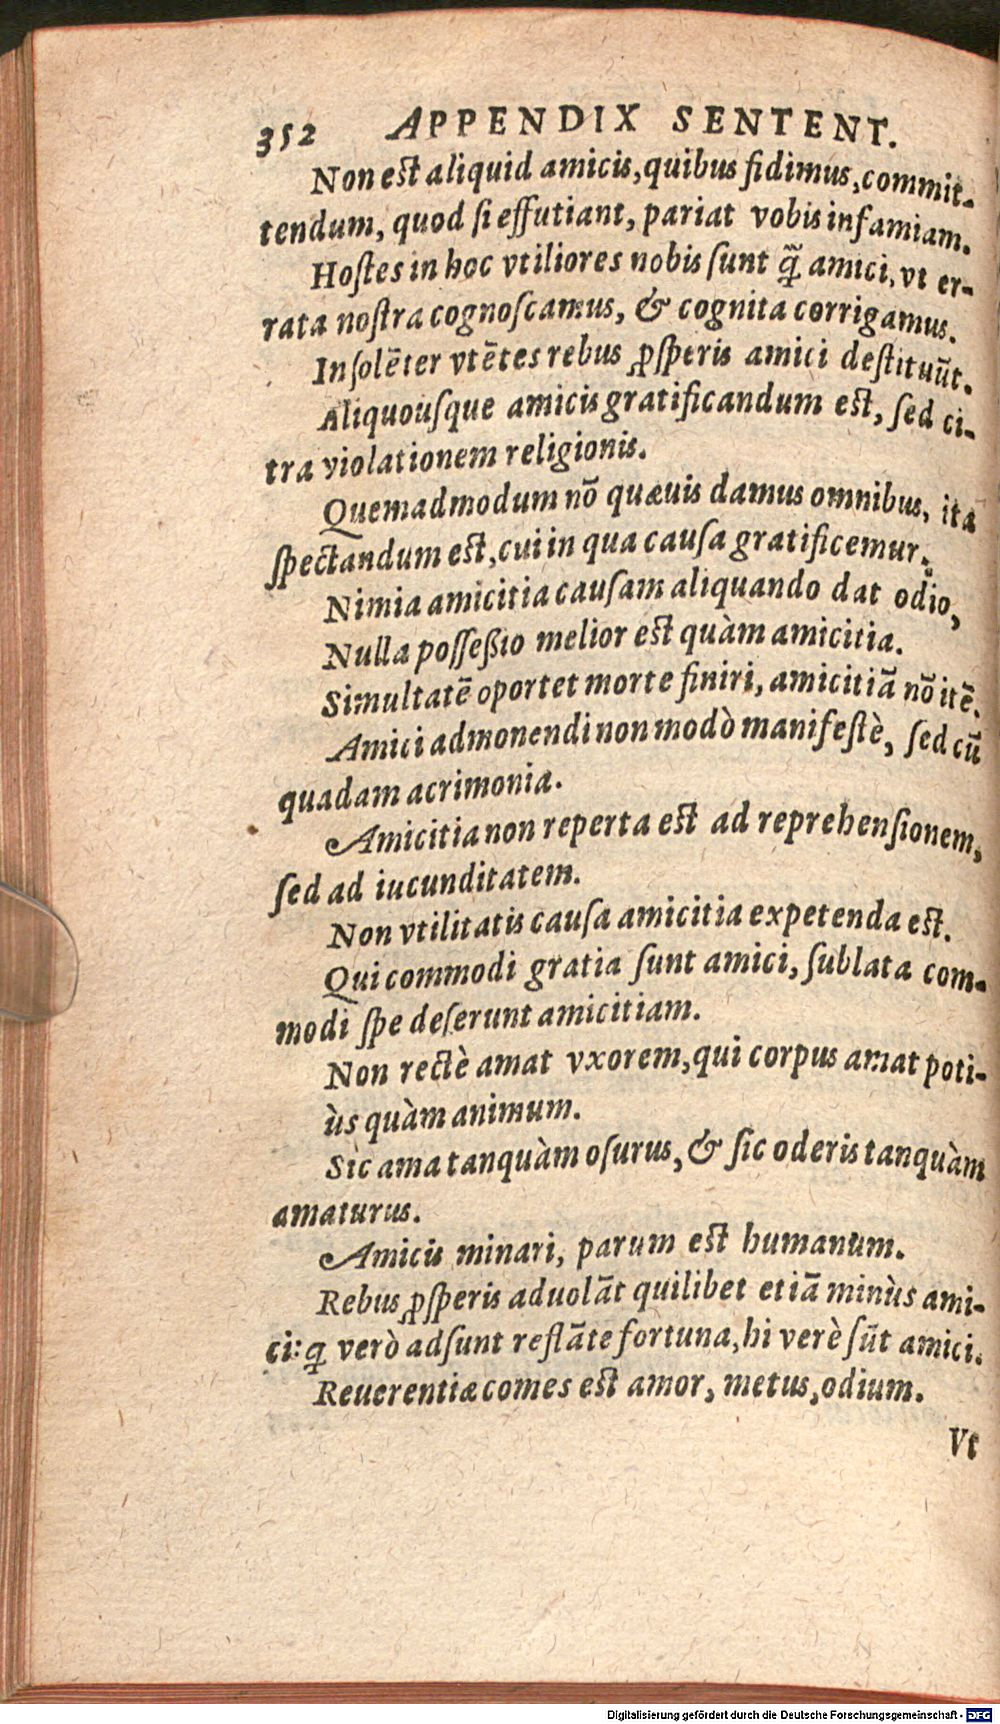 352 APPENDIX SENTENT.
Non est aliquid amicis, quibus fidimus, commit-
tendum, quod si effutiant, pariat vobis infamiam.
Hoſtes in hoc vtiliores nobis ſunt q̃ amici, vt er-
rata noſtra cognoſcamus, & cognita corrigamus.
Inſolẽter vtẽtes rebus ꝓſperis amici deſtituũt.
Aliquouſque amicis gratificandum eſt, ſed ci-
tra violationem religionis.
Quemadmodum nõ quæuis damus omnibus, ita
ſpectandum eſt, cui in qua cauſa gratificemur.
Nimia amicitia cauſam aliquando dat odio,
Nulla poſſeßio melior eſt quàm amicitia.
Simultatẽ oportet morte finiri, amicitiã nõ itẽ.
Amici admonendi non modò manifeſtè, ſed cũ
quadam acrimonia.
Amicitia non reperta eſt ad reprehenſionem,
ſed ad iucunditatem.
Non vtilitatis cauſa amicitia expetenda eſt.
Qui commodi gratia ſunt amici, ſublata com-
modi ſpe deſerunt amicitiam.
Non rectè amat vxorem, qui corpus amat poti-
ùs quàm animum.
Sic ama tanquàm oſurus, & ſic oderis tanquàm
amaturus.
Amicis minari, parum eſt humanum.
Rebus ꝓſperis aduolãt quilibet etiã minùs ami-
ci: q verò adſunt reflãte fortuna, hi verè ſũt amici.
Reuerentiæ comes eſt amor, metus, odium.
Vt
Digitalisierung gefördert durch die Deutsche Forschungsgemeinschaft - DFG